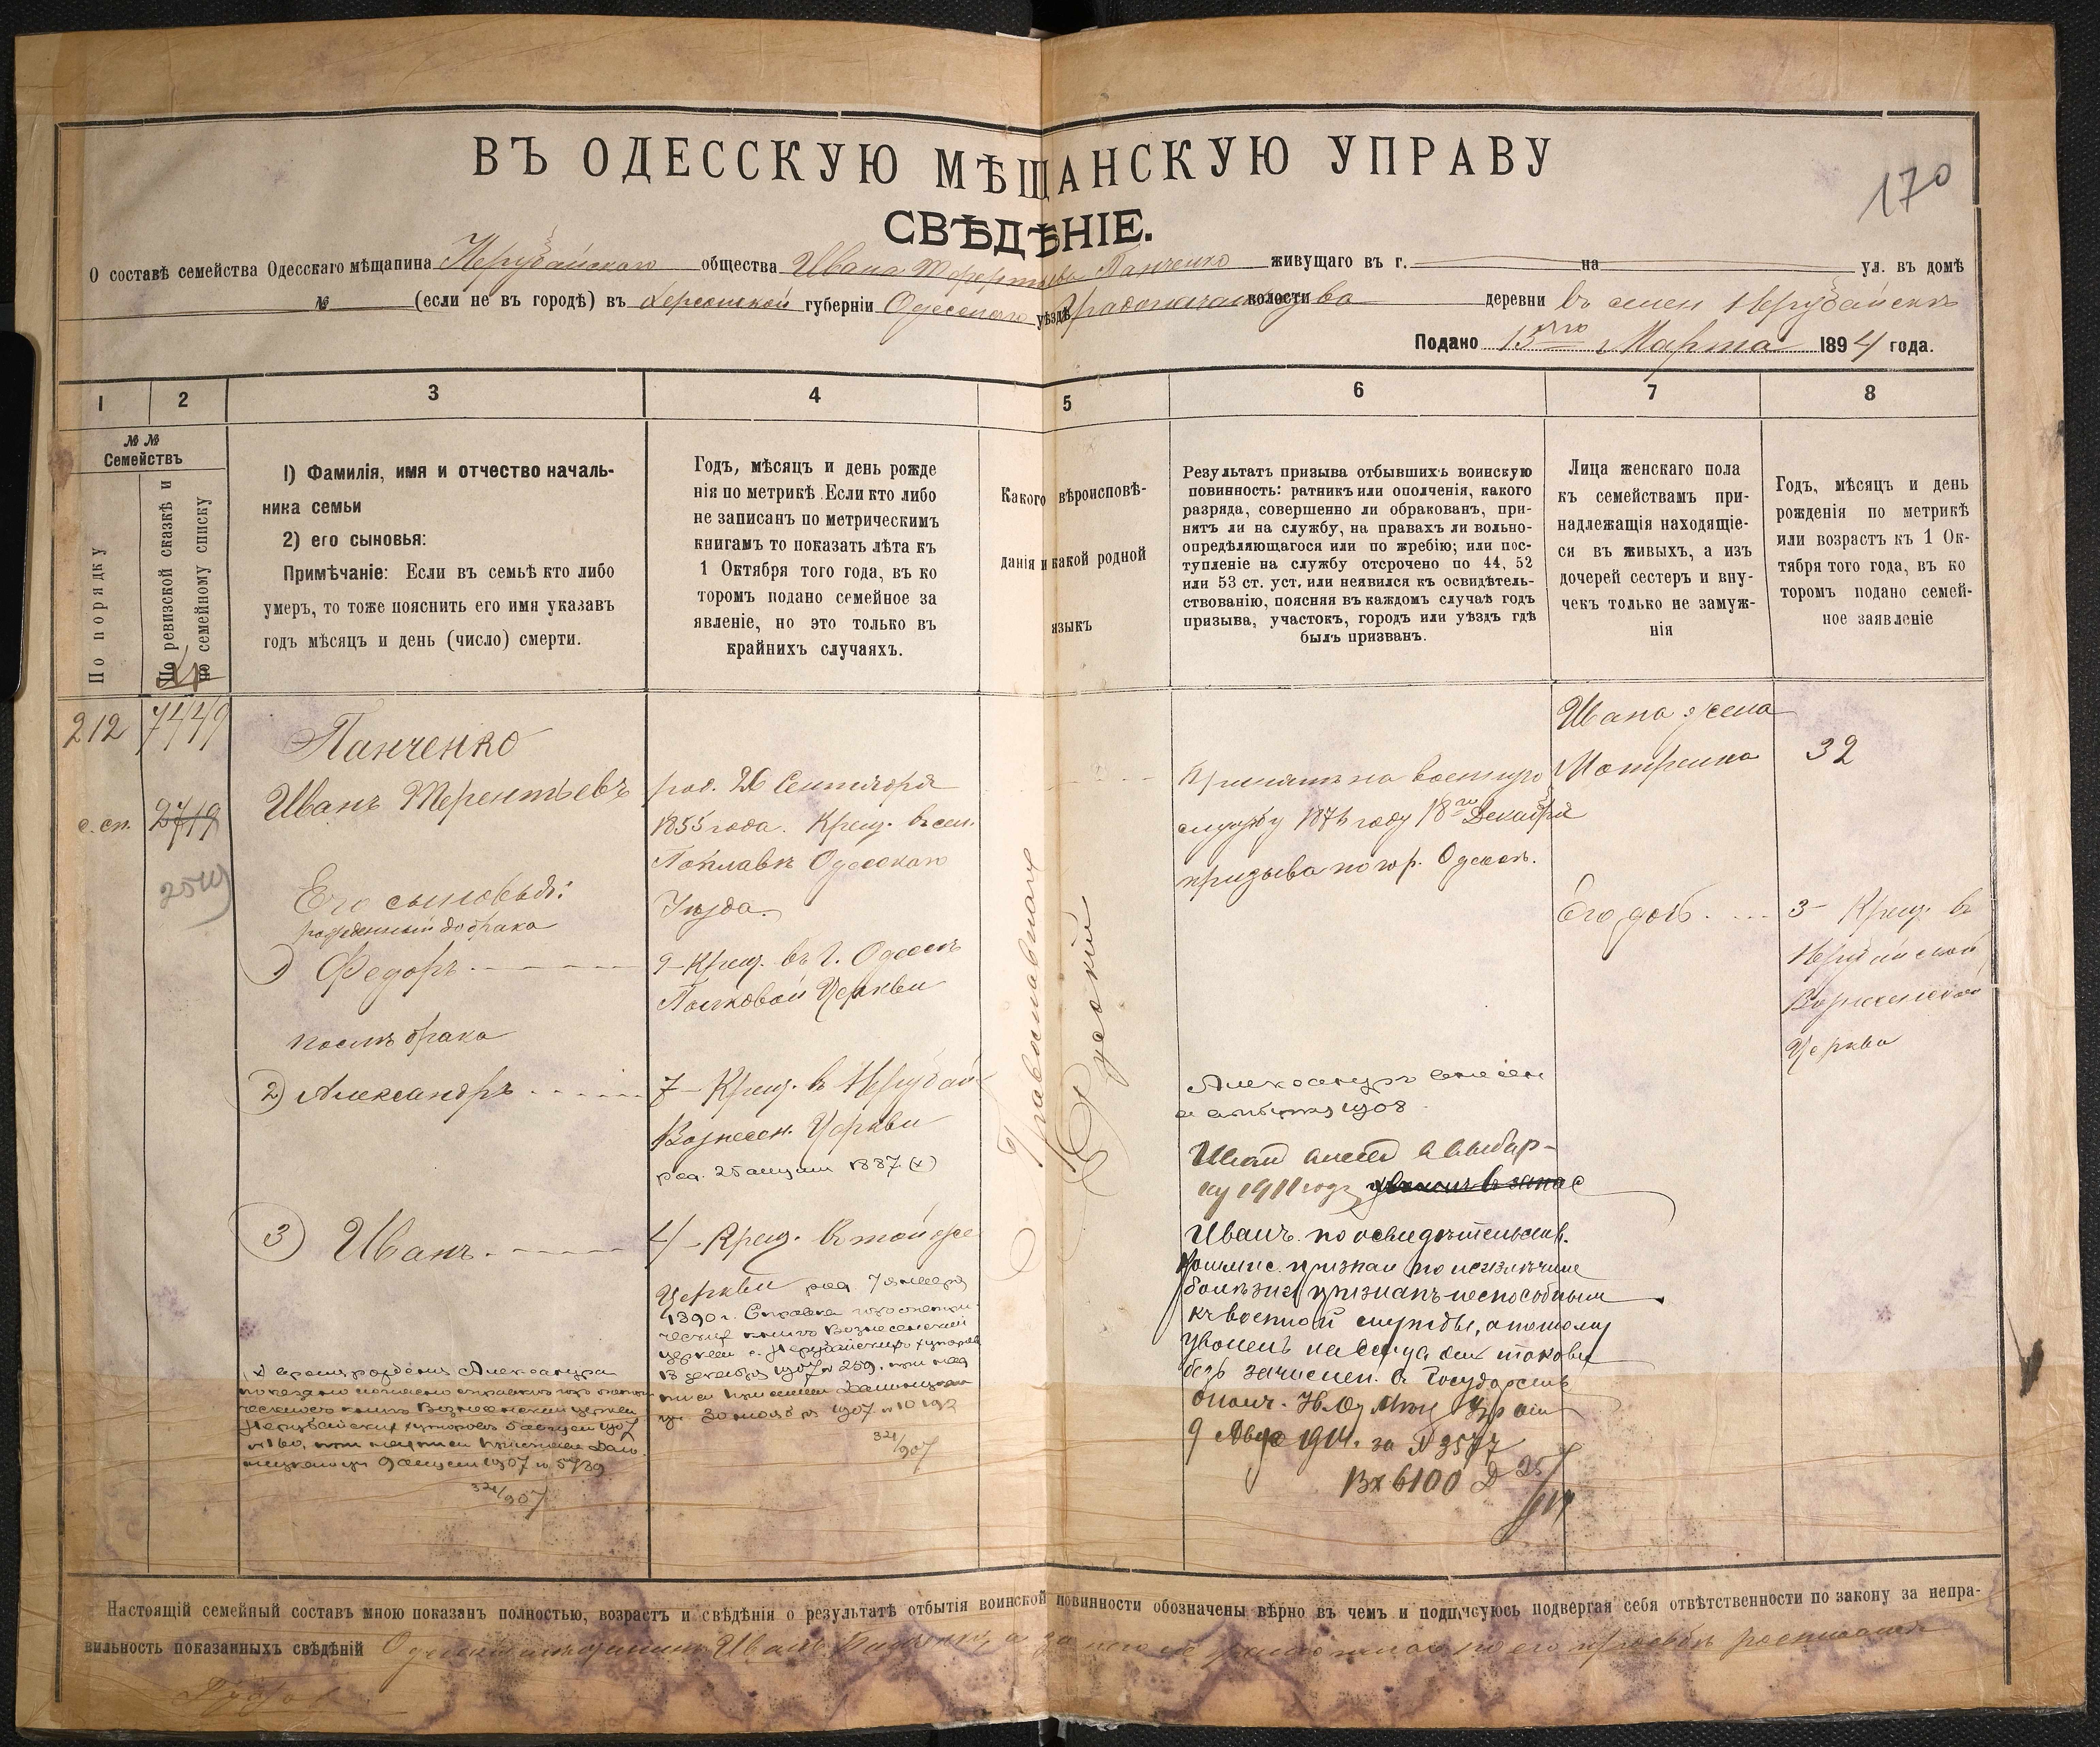 170
ВЪ ОДЕССКУЮ МѢЩАНСКУЮ УПРАВУ
СВѢДѢНІЕ.
О составѣ семейства Одесскаго мѣщанина Нерубайскаго общества Ивана Терентьева Панченко живущаго въ г. на ул. въ домѣ
№ (если не въ городѣ) въ Херсонской губерніи Одесскаго уѣзда Градоначальства волости деревни въ селен Нерубайскѣ
Подано 15го Марта 1894 года.
1 2 3 4 5 6 7 8
№ №
Семействъ
По порядку
По ревизской сказкѣ и
по семейному списку
1) Фамилія, имя и отчество началь-
ника семьи
2) его сыновья:
Примѣчаніе: Если въ семьѣ кто либо
умеръ, то тоже пояснить его имя указавъ
годъ мѣсяцъ и день (число) смерти.
Годъ, мѣсяцъ и день рожде
нія по метрикѣ. Если кто либо
не записанъ по метрическимъ
книгамъ то показать лѣта къ
1 Октября того года, въ ко
торомъ подано семейное за
явленіе, но это только въ
крайнихъ случаяхъ.
Какого вѣроисповѣ-
данія и какой родной
языкъ
Результатъ призыва отбывшихъ воинскую
повинность: ратникъ или ополченія, какого
разряда, совершенно ли обракованъ, при-
нятъ ли на службу, на правахъ ли вольно-
опредѣляющагося или по жребію; или пос-
тупленіе на службу отсрочено по 44, 52
или 53 ст. уст. или неявился къ освидѣтель-
ствованію, поясняя въ каждомъ случаѣ годъ
призыва, участокъ, городъ или уѣздъ гдѣ
былъ призванъ.
Лица женскаго пола
къ семействамъ при-
надлежащія находящіе-
ся въ живыхъ, а изъ
дочерей сестеръ и вну-
чекъ только не замуж-
нія
Годъ, мѣсяцъ и день
рожденія по метрикѣ
или возрастъ къ 1 Ок-
тября того года, въ ко
торомъ подано семей-
ное заявленіе
212
7449
с. сп.
2719
Панченко
Иванъ Терентьевъ
Его сыновья:
рожденный до брака
1) Федоръ
послѣ брака
2) Александръ
3) Иванъ
род. 26 Сентября
1855 года. Крещ. въ сел.
Одесскаго
Уѣзда.
9 Крещ. въ г. Одессѣ
Полковой Церкви
7 Крещ. въ Нерубай
Вознесен. Церкви
род. 25 августа 1887 (х)
4 Крещ. въ той же
Церкви род 7 января
1890 г. Справка изъ метри
ческихъ книгъ Вознесенской
церкви с. Нерубайскихъ хуторовъ
13 декабря 1907 № 259, при
30 ноября 1907 № 10192
321/907
(х время рожденія Александра
показано согласно справки изъ метри
ческихъ книгъ Вознесенской церкви
Нерубайскихъ хуторовъ 5 августа 1907
№ 160, при
9 августа 1907 № 5739
321/907
Православная
Русскій
Принятъ на военную
службу 1876 году 18го Декабря
призыва по гор. Одессѣ.
Александръ внесен
1908
Иван внесен в выбор-
ку 1911 года
Иванъ по освидѣтельств.
Коммис. признан по неизлѣчиме
болѣзни признанъ неспособным
къ военной службы, а потому
уволенъ на всегда от таковы
безъ зачислен. в Государств
ополч.
9 Авгу 1914 г. за № 3577
Вх 6100
Ивана жена
Матрена
32
Его доч.
3 Крещ. въ
Нерубайской
Вознесенской
Церкви
Настоящій семейный составъ мною показанъ полностью, возрастъ и свѣдѣнія о результатѣ отбытія воинской повинности обозначены вѣрно въ чемъ и подписуюсь подвергая себя отвѣтственности по закону за непра-
вильность показанныхъ свѣдѣній Одесскій мѣщанинъ Иванъ Панченко, а за него по его просьбѣ росписался